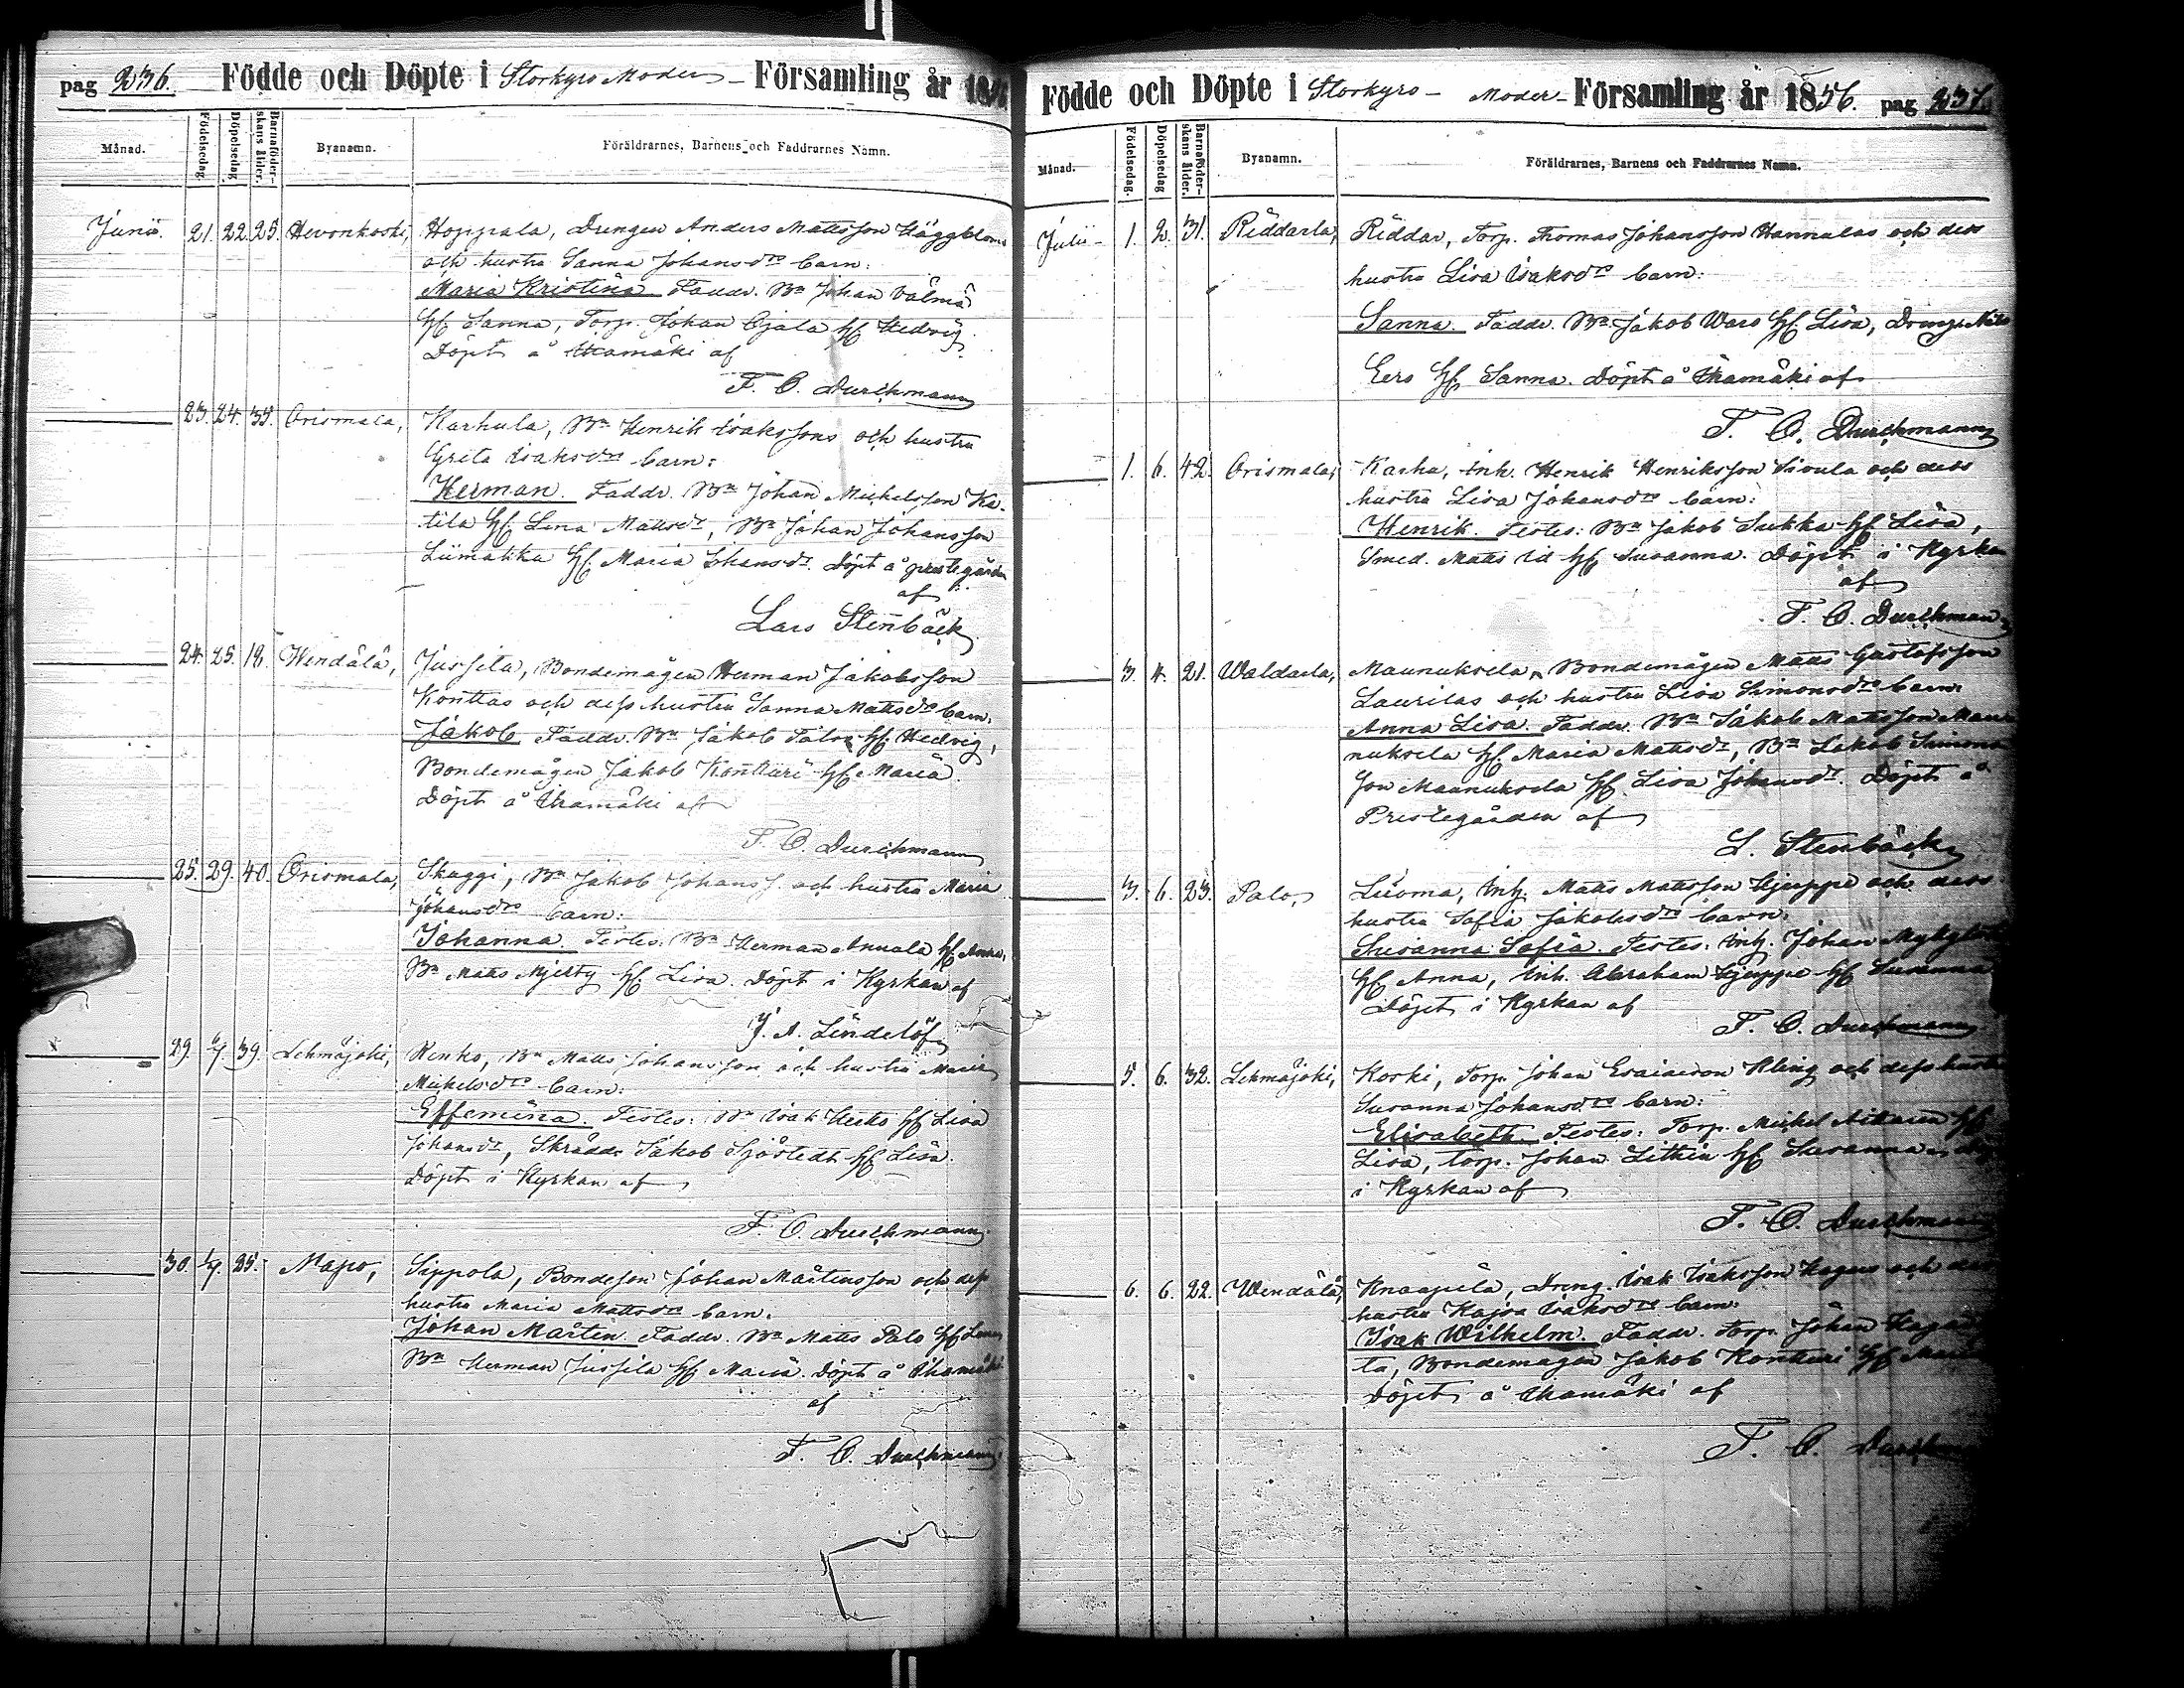 pag 236. Födde och Döpte i Storkyro Moder - Församling år 1856
Månad. Födelsedag. Döpelsedag. Barnaföder-skans ålder. Byanamn. Föräldrarnes, Barnens och Faddrarnes Namn.
Junii. 21. 22. 25. Hevonkoski, Hoppala, Drengen Anders Mattsson Häggbloms
och hustru Sanna Johansdrs barn:
Maria Kristina Faddr. Bn Johan Välmä
hf Sanna, Torp. Johan Ojala hf Hedvig.
Döpt å Ikamäki af
F. O. Durchmann
23. 24. 35. Orismala, Karhula, Bn Henrik Isakssons och hustru
Greta Isaksdrs barn:
Herman. Faddr. Bn Johan Michelsson Ka-
tila hf Lena Mattsdr, Bn Johan Johansson
Liimakka hf. Maria Johansdr. Döpt å prestegården
af
Lars Stenbäck
24. 25. 18. Wendälä, Jussila, Bondemågen Herman Jakobsson
Konttas och dess hustru Sanna Mattsdrs barn.
Jakob Faddr. Bn Jakob hf Hedvig,
Bondemågen Jakob Kontturi hf Maria.
Döpt å Ikamäki af
F. O. Durchmann
25. 29. 40. Orismala, Skaggi, Bn Jakob Johanss. och hustru Maria
Johansdrs barn:
Johanna. Testes: Bn Herman Annala hf Anna,
Bn Matts Mjelty hf. Lisa. Döpt i Kyrkan af
J. A. Lindelöf
29. 6/7. 39. Lehmäjoki, Renko, Bn Matts Johansson och hustru Maria
Mickelsdrs barn:
Effemina. Testes: Bn Isak Hesko hf Lisa
Johansdr, Skrädd. Jakob Sjöstedt hf Lisa.
Döpt i Kyrkan af
F. O. Durchmann.
30. 1/7. 25. Napo, Sippola, Bondeson Johan Mårtensson och dess
hustru Maria Mattsdrs barn.
Johan Mårten. Faddr. Bn Matts Palo hf Lena
Bn Herman Jussila hf Maria. Döpt å Ikamäki
af
F. O. Durchmann.
Födde och Döpte i Storkyro - Moder - Församling år 1856. pag 237.
Månad. Födelsedag. Döpelsedag Barnaföder-skans ålder. Byanamn. Föräldrarnes, Barnens och Faddrarnes Namn.
Julii - 1. 2. 31. Riddarla, Riddar, Torp. Thomas Johansson Hannulas och dess
hustru Lisa Isaksdrs barn:
Sanna. Faddr. Bn Jakob Wars hf Lisa, Dreng. Nils
Eers hf Sanna. Döpt å Ikamäki af
F. O. Durchmann
1. 6. 42. Orismala, Karhu, Inh. Henrik Henriksson Sivula och dess
hustru Lisa Johansdrs barn:
Henrik. Testes: Bn Jakob Sukka hf Lisa,
Smed. Matts hf Susanna. Döpt i Kyrkan
af
F. O. Durchmann
3. 4. 21. Waldarla, Maunuksela, Bondemågen Matts Gustafsson
Laurilas och hustru Lisa Simonsdrs barn.
Anna Lisa. Faddr. Bn Jakob Mattsson Mau-
nuksela hf Maria Mattsdr, Bn Jakob Simons
son Maunuksela hf Lisa Johansdr. Döpt å
Prestegården af
L. Stenbäck
3. 6. 23. Palo, Luoma, Inh. Matts Mattsson Kjerppe och dess
hustru Sofia Jakobsdrs barn.
Susanna Sofia. Testes: Inh. Johan
hf Anna, Inh. Abraham Kjerppe hf Susanna
Döpt i Kyrkan af
F. O. Durchmann
5. 6. 32. Lehmäjoki, Koski, Torp. Johan Esaiasson Kling och dess hustru
Susanna Johansdrs barn:
Elisabeth. Testes: Torp. Mickel hf
Lisa, torp. Johan Litkin hf Susanna.
i Kyrkan af
F. O. Durchmann
6. 6. 22. Wendälä, Knaapila, Dreng. Isak Isaksson och dess
hustru Kajsa Isaksdrs barn.
Isak Wilhelm. Faddr. Torp. Johan
ta, Bondemågen Jakob Kontturi hf Maria
Döpt å Ikamäki af
F. O. Durchmann